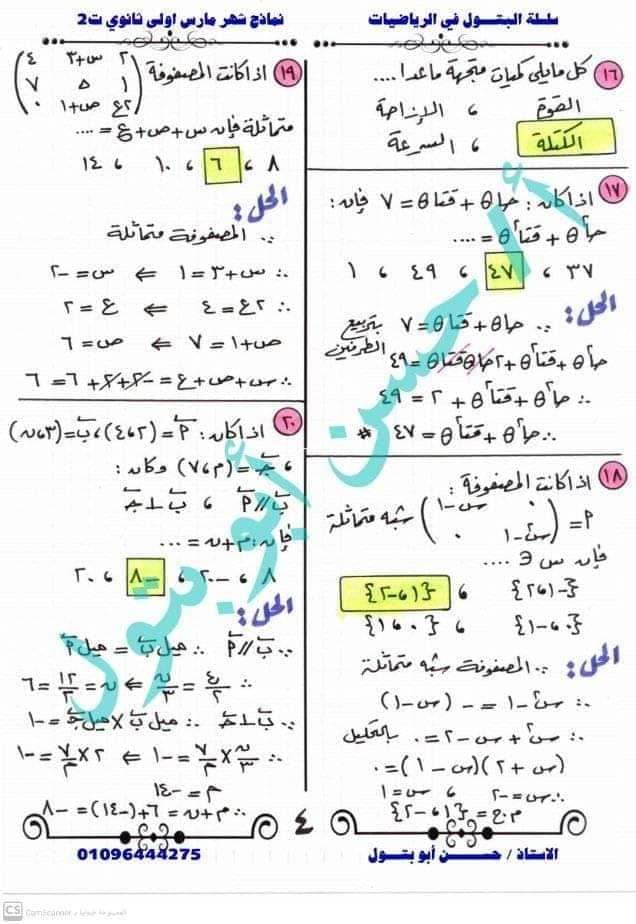 سلسلة البتول في الرياضيات
نماذج شهر مارس اولى ثانوي ت٢
١٦ كل مايلى كميات متجهة ماعدا ....
القوة ، الإزاحة
الكتلة ، السرعة
١٧ اذا كان : حا θ + قتا θ = ٧ فإن :
حا٢ θ + قتا٢ θ = ....
٣٧ ، ٤٧ ، ٤٩ ، ١
الحل :
∵ حا θ + قتا θ = ٧ بتربيع الطرفين
حا٢ θ + قتا٢ θ + ٢ حا θ قتا θ = ٤٩
∴ حا٢ θ + قتا٢ θ + ٢ = ٤٩
∴ حا٢ θ + قتا٢ θ = ٤٧ #
١٨ اذا كانت المصفوفة :
٠ س - ١
P = شبه متماثلة
س٢ - ١ ٠
فإن س ∈ ....
{-١ ، ٢} ، {١ ، -٢}
{٠ ، -١} ، {٠ ، ١}
الحل :
∵ المصفوفة شبه متماثلة
∴ س٢ - ١ = - (س - ١)
∴ س٢ + س - ٢ = ٠ بالتحليل
(س + ٢)(س - ١) = ٠
∴ س = -٢ ، س = ١
م.ح = {١ ، -٢}
١٩ اذا كانت المصفوفة
٢ س + ٣ ٤
١ ٥ ٧
٢ع ص + ١ ٠
متماثلة فإن س + ص + ع = ....
٨ ، ٦ ، ١٠ ، ١٤
الحل :
∵ المصفوفة متماثلة
∴ س + ٣ = ١ ⇐ س = -٢
∴ ٢ع = ٤ ⇐ ع = ٢
ص + ١ = ٧ ⇐ ص = ٦
∴ س + ص + ع = -٢ + ٢ + ٦ = ٦
٢٠ اذا كان : P = (٢ ، ٤) ، ب = (٣ ، ن)
، جـ = (م ، ٧) وكان :
ب // P ، ب ⊥ جـ
فإن : م + ن = ....
٨ ، -٢٠ ، -٨ ، ٢٠
الحل :
∵ ب // P ∴ ميل ب = ميل P
∴ ٤/٢ = ن/٣ ∴ ن = ١٢/٢ = ٦
∵ ب ⊥ جـ ∴ ميل ب × ميل جـ = -١
∴ ن/٣ × ٧/م = -١ ⇐ ٢ × ٧/م = -١
م = -١٤
∴ م + ن = ٦ + (-١٤) = -٨
أ/حسن أبو بتول
٤
الاستاذ / حسن أبو بتول
01096444275
CS CamScanner الممسوحة ضوئيا بـ